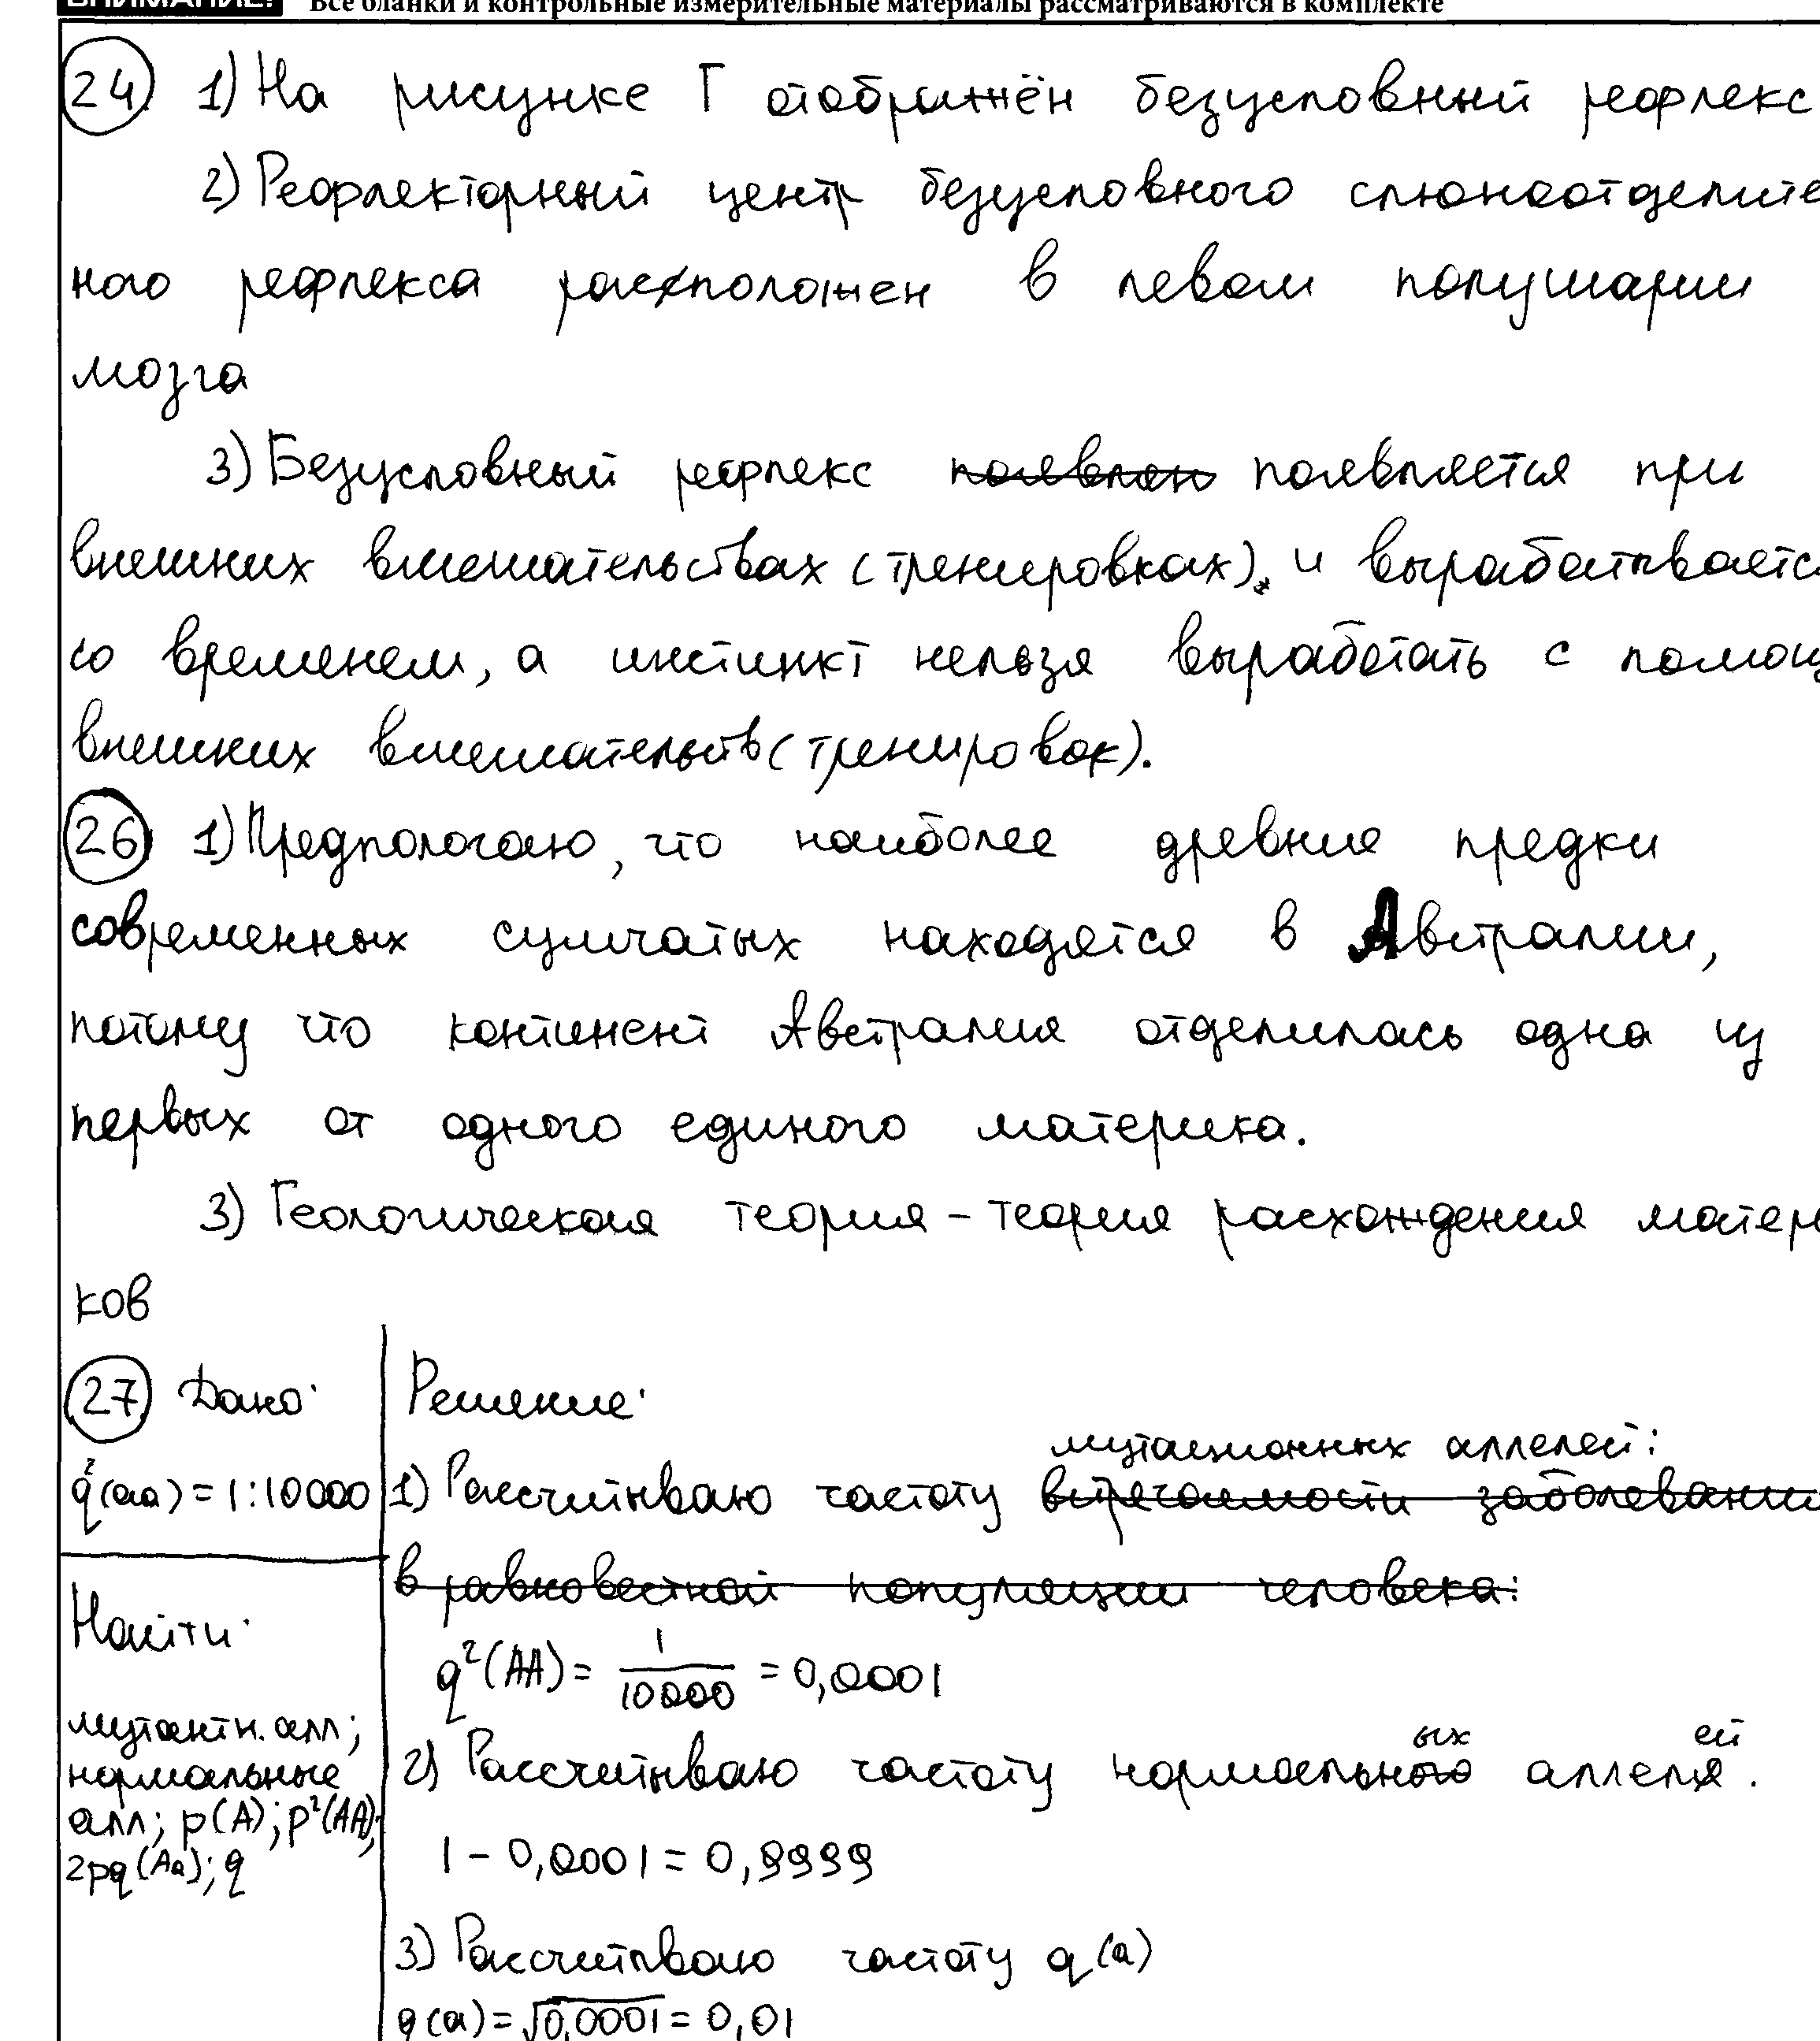 ВНИМАНИЕ! Все бланки и контрольные измерительные материалы рассматриваются в комплекте
24 1) На рисунке Г отображён безусловный рефлекс
2) Рефлекторный центр безусловного слюноотделите
ного рефлекса расположен в левом полушарии
мозга
3) Безусловный рефлекс появлен появляется при
внешних вмешательствах (тренировках), и вырабатываетс
со временем, а инстинкт нельзя выработать с помощ
внешних вмешательств (тренировок).
26 1) Предпологаю, что наиболее древние предки
современных сумчатых находятся в Австралии,
потому что континент Австралия отделилась одна из
первых от одного единого материка.
3) Геологическая теория - теория расхождения матери
ков
27 Дано: Решение:
мутационных аллелей:
q²(aa) = 1:10000 1) Рассчитываю частоту встречаемости заболевани
в равновестной популяции человека:
Найти:
q²(AA) = 1/10000 = 0,0001
мутантн. алл;
нормальные
алл; p(A); p²(AA);
2pq(Aa); q
2) Рассчитываю частоту нормальных аллелей.
1 - 0,0001 = 0,9999
3) Рассчитываю частоту q(a)
q(a) = √0,0001 = 0,01